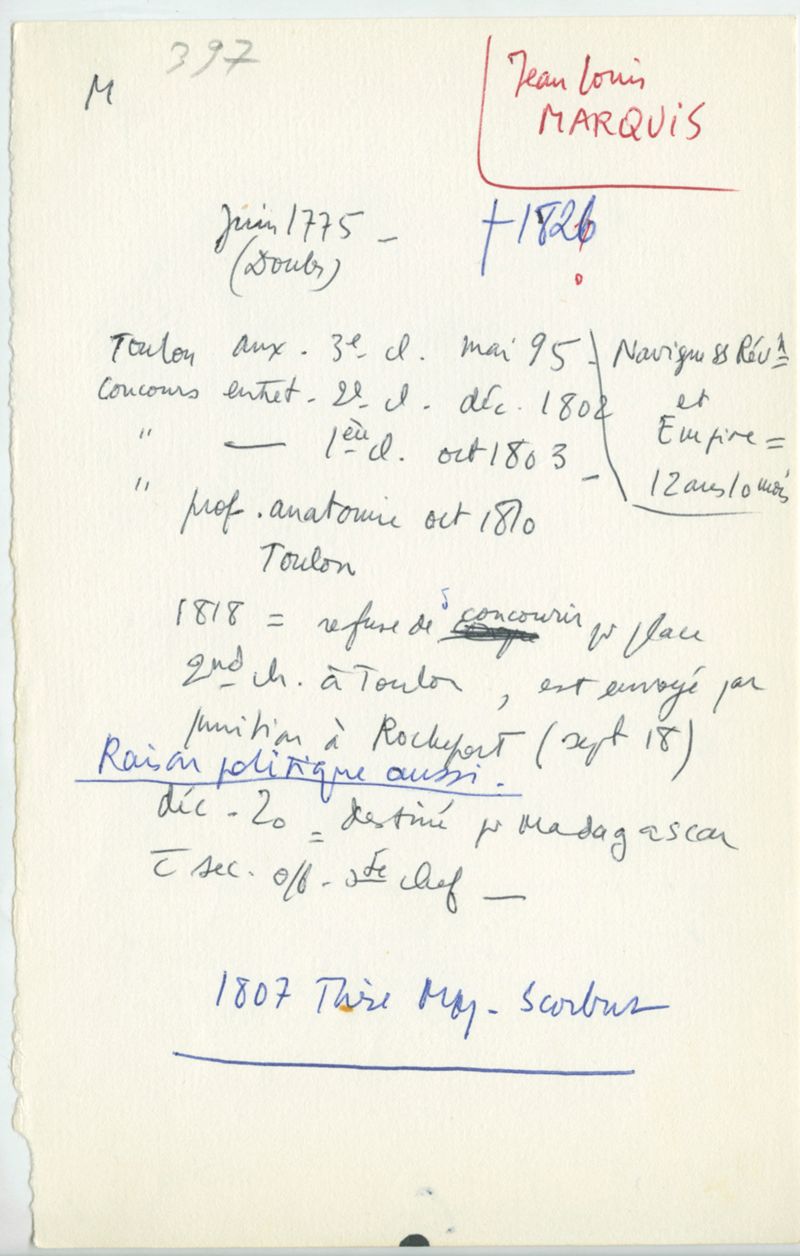 397
M
Jean Louis
MARQUIS
Juin 1775 - †1826
(Doubs) ?
Toulon aux. 3e cl. mai 95 - Navigue ss Révn
Concours entret. 2e cl. déc. 1802 et
" — 1ère cl. oct 1803 - Empire =
12 ans 10 mois
" prof. anatomie oct 1810
Toulon
1818 = refuse de concourir pr place
2nd ch. à Toulon, est envoyé par
punition à Rochefort (sept 18)
Raison politique aussi.
déc - 20 = destiné pr Madagascar
sec. off. chef —
1807 Thèse Mpy - Scorbut